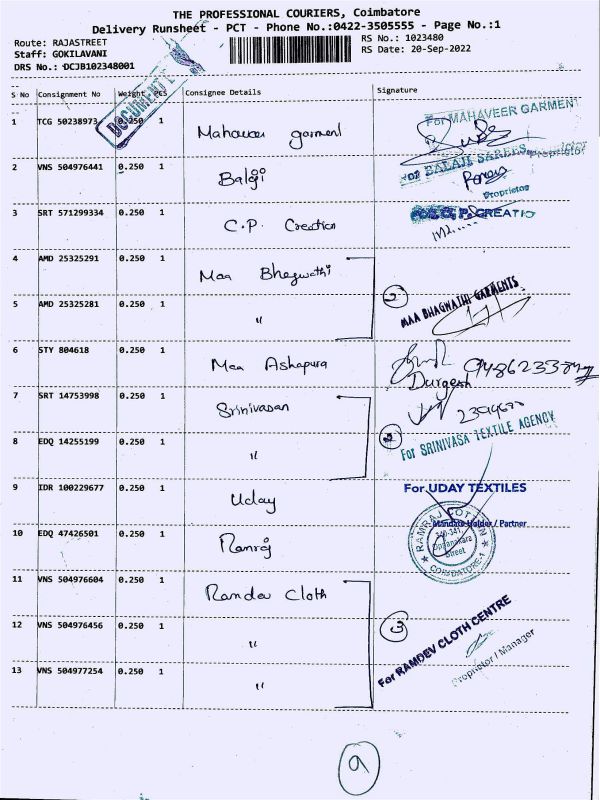 THE PROFESSIONAL COURIERS, Coimbatore
Delivery Runsheet - PCT - Phone No.:0422-3505555 - Page No.:1
Route: RAJASTREET
Staff: GOKILAVANI
DRS No.: DCJB102348001
RS No.: 1023480
RS Date: 20-Sep-2022
DOCUMENT
S No Consignment No Weight PCS Consignee Details Signature
1 TCG 50238973 0.250 1 Mahaveer garment For MAHAVEER GARMENT
2 VNS 504976441 0.250 1 Balaji For BALAJI SAREES
Proprietor
Proprietor
3 SRT 571299334 0.250 1 C.P. Creation For C. P. CREATIO
4 AMD 25325291 0.250 1 Maa Bhagwathi
2 MAA BHAGWATHI GARMENTS
5 AMD 25325281 0.250 1 "
6 STY 804618 0.250 1 Maa Ashapura
Durgesh
7 SRT 14753998 0.250 1 Srinivasan
2 For SRINIVASA TEXTILE AGENCY
8 EDQ 14255199 0.250 1 "
9 IDR 100229677 0.250 1 Uday For UDAY TEXTILES
Mandate Holder / Partner
10 EDQ 47426501 0.250 1 Ramraj
RAMRAJ COTTON
340-341,
Oppanakara
Street
COIMBATORE-1
11 VNS 504976604 0.250 1 Ramdev Cloth
12 VNS 504976456 0.250 1 "
3 For RAMDEV CLOTH CENTRE
Proprietor / Manager
13 VNS 504977254 0.250 1 "
9